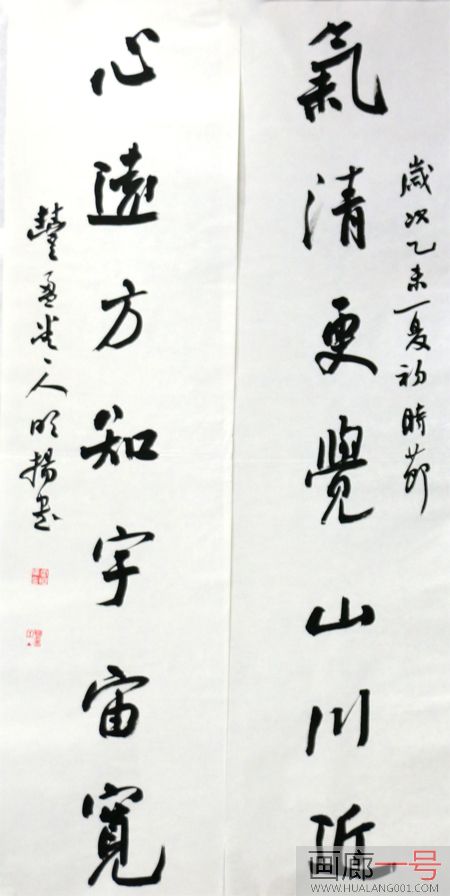 歲次乙未夏初時節
氣清更覺山川近
心遠方知宇宙寬
人明揚書
画廊一号
WWW.HUALANG001.COM